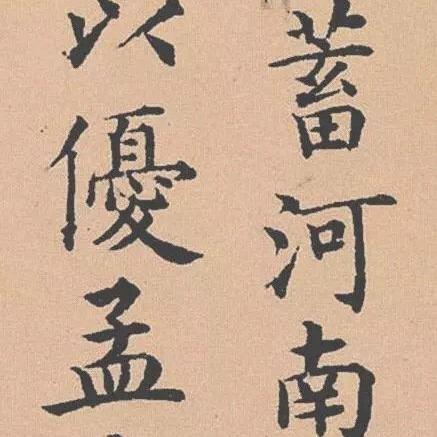 蓄河南
以優孟